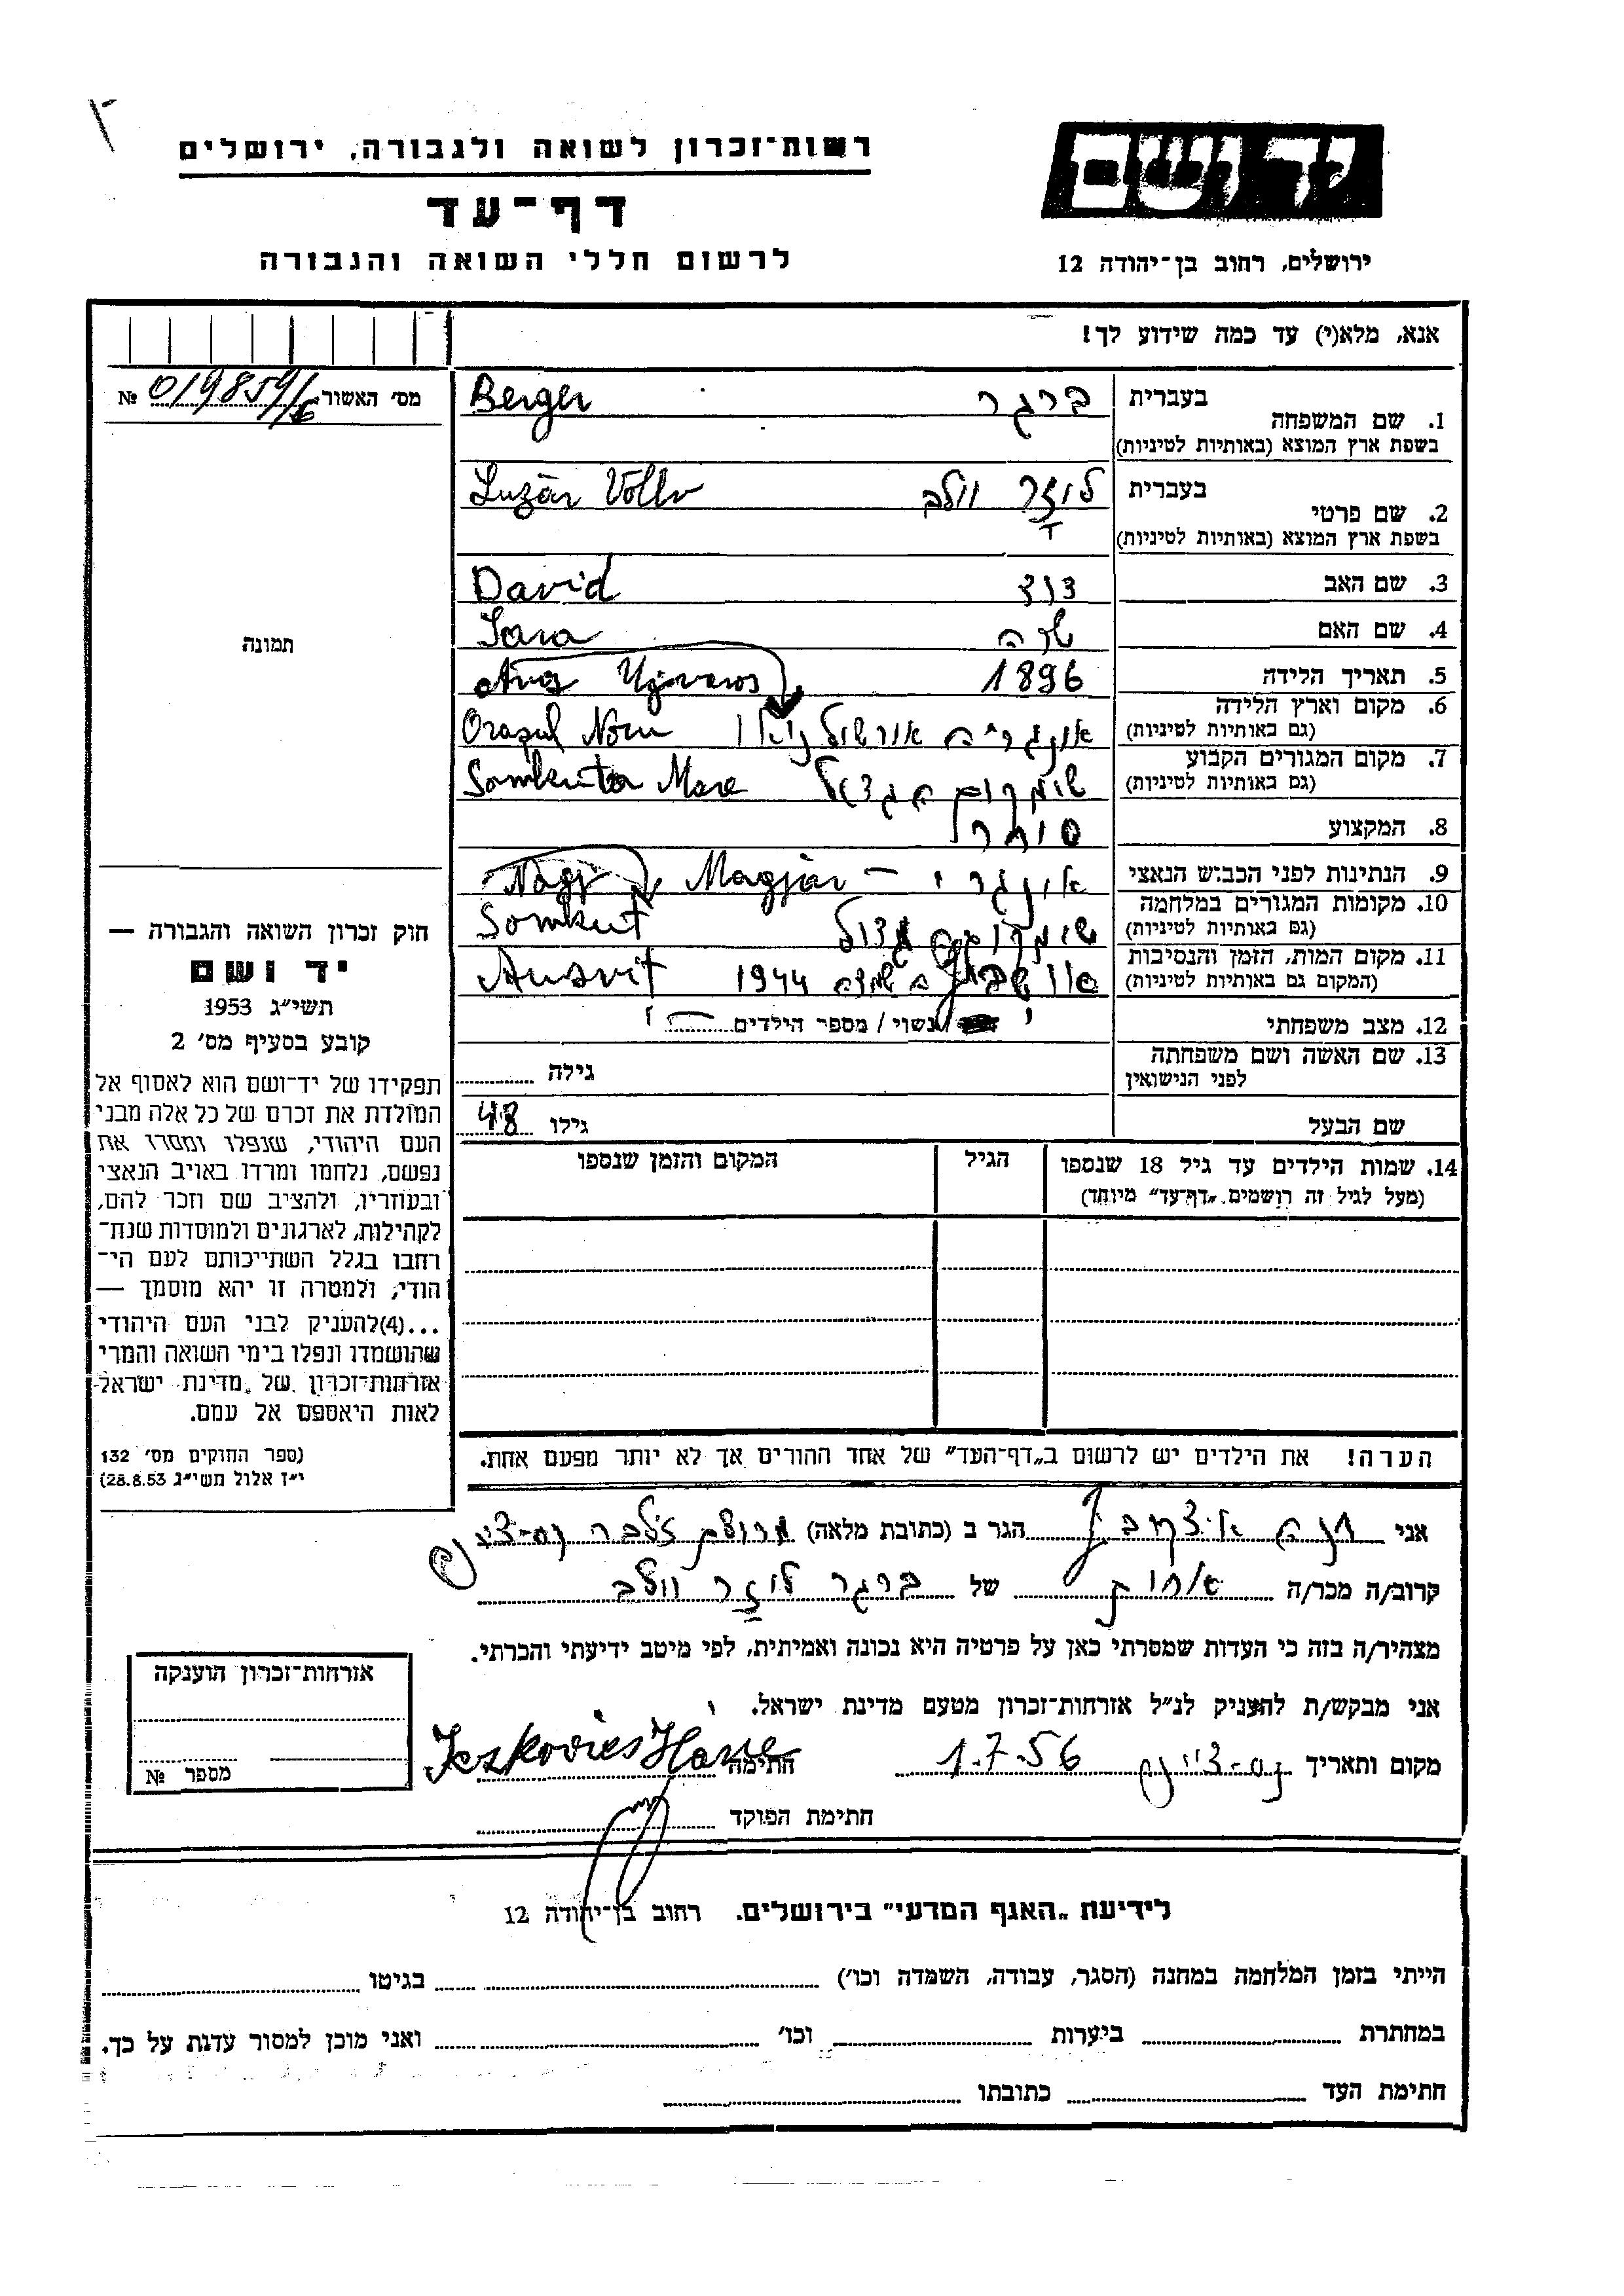 רשות־זכרון לשואה ולגבורה, ירושלים
דף־עד
לרשום חללי השואה והגבורה
יד ושם
ירושלים, רחוב בן־יהודה 12
אנא, מלא(י) עד כמה שידוע לך!
מס׳ האשור № 019859/
תמונה
1. שם המשפחה בעברית ברגר Berger
בשפת ארץ המוצא (באותיות לטיניות)
2. שם פרטי בעברית לוזר וולב Luzár Vollv
בשפת ארץ המוצא (באותיות לטיניות)
3. שם האב דוד David
4. שם האם שרה Sara
5. תאריך הלידה 1896 Ujvaros
6. מקום וארץ הלידה אונגריה Orasul Nou
(גם באותיות לטיניות)
7. מקום המגורים הקבוע Somkuta Mare
(גם באותיות לטיניות)
8. המקצוע סוחר
9. הנתינות לפני הכבוש הנאצי אונגרי – Magjár Nagy
10. מקומות המגורים במלחמה גדול Somkut
(גם באותיות לטיניות)
11. מקום המות, הזמן והנסיבות 1944 Ausvit
(המקום גם באותיות לטיניות)
12. מצב משפחתי נשוי / מספר הילדים
13. שם האשה ושם משפחתה
לפני הנישואין גילה
שם הבעל גילו 48
14. שמות הילדים עד גיל 18 שנספו הגיל המקום והזמן שנספו
(מעל לגיל זה רושמים „דף־עד״ מיוחד)
חוק זכרון השואה והגבורה —
יד ושם
תשי״ג 1953
קובע בסעיף מס׳ 2
תפקידו של יד־ושם הוא לאסוף אל
המולדת את זכרם של כל אלה מבני
העם היהודי, שנפלו ומסרו את
נפשם, נלחמו ומרדו באויב הנאצי
ובעוזריו, ולהציב שם וזכר להם,
לקהילות, לארגונים ולמוסדות שנח־
רחבו בגלל השתייכותם לעם הי־
הודי; ולמטרה זו יהא מוסמך —
...(4)להעניק לבני העם היהודי
שהושמדו ונפלו בימי השואה והמרי
אזרחות־זכרון של מדינת ישראל
לאות היאספם אל עמם.
(ספר החוקים מס׳ 132
י״ז אלול תשי״ג 28.8.53)
הערה! את הילדים יש לרשום ב„דף־העד״ של אחד ההורים אך לא יותר מפעם אחת.
אני חנה איצקוביץ הגר ב (כתובת מלאה) נס־ציונה
קרוב/ה מכר/ה אחות של ברגר לוזר וולב
מצהיר/ה בזה כי העדות שמסרתי כאן על פרטיה היא נכונה ואמיתית, לפי מיטב ידיעתי והכרתי.
אני מבקש/ת להעניק לנ״ל אזרחות־זכרון מטעם מדינת ישראל.
מקום ותאריך נס־ציונה 1.7.56 חתימה Icskovics Hane
חתימת הפוקד
אזרחות־זכרון הוענקה
מספר №
לידיעת „האגף המדעי״ בירושלים. רחוב בן־יהודה 12
הייתי בזמן המלחמה במחנה (הסגר, עבודה, השמדה וכו׳) בגיטו
במחתרת ביערות וכו׳ ואני מוכן למסור עדות על כך.
חתימת העד כתובתו